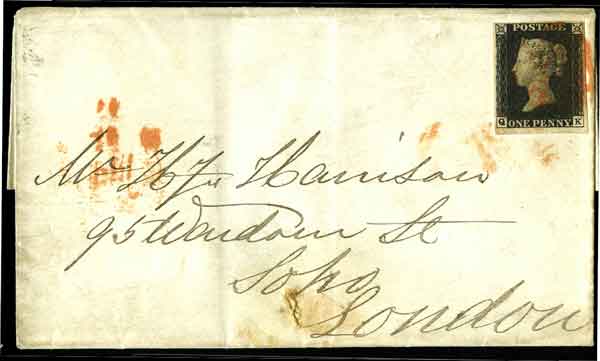 POSTAGE
Q K
ONE PENNY
Mr Harrison
95 Wardour St
Soho
London